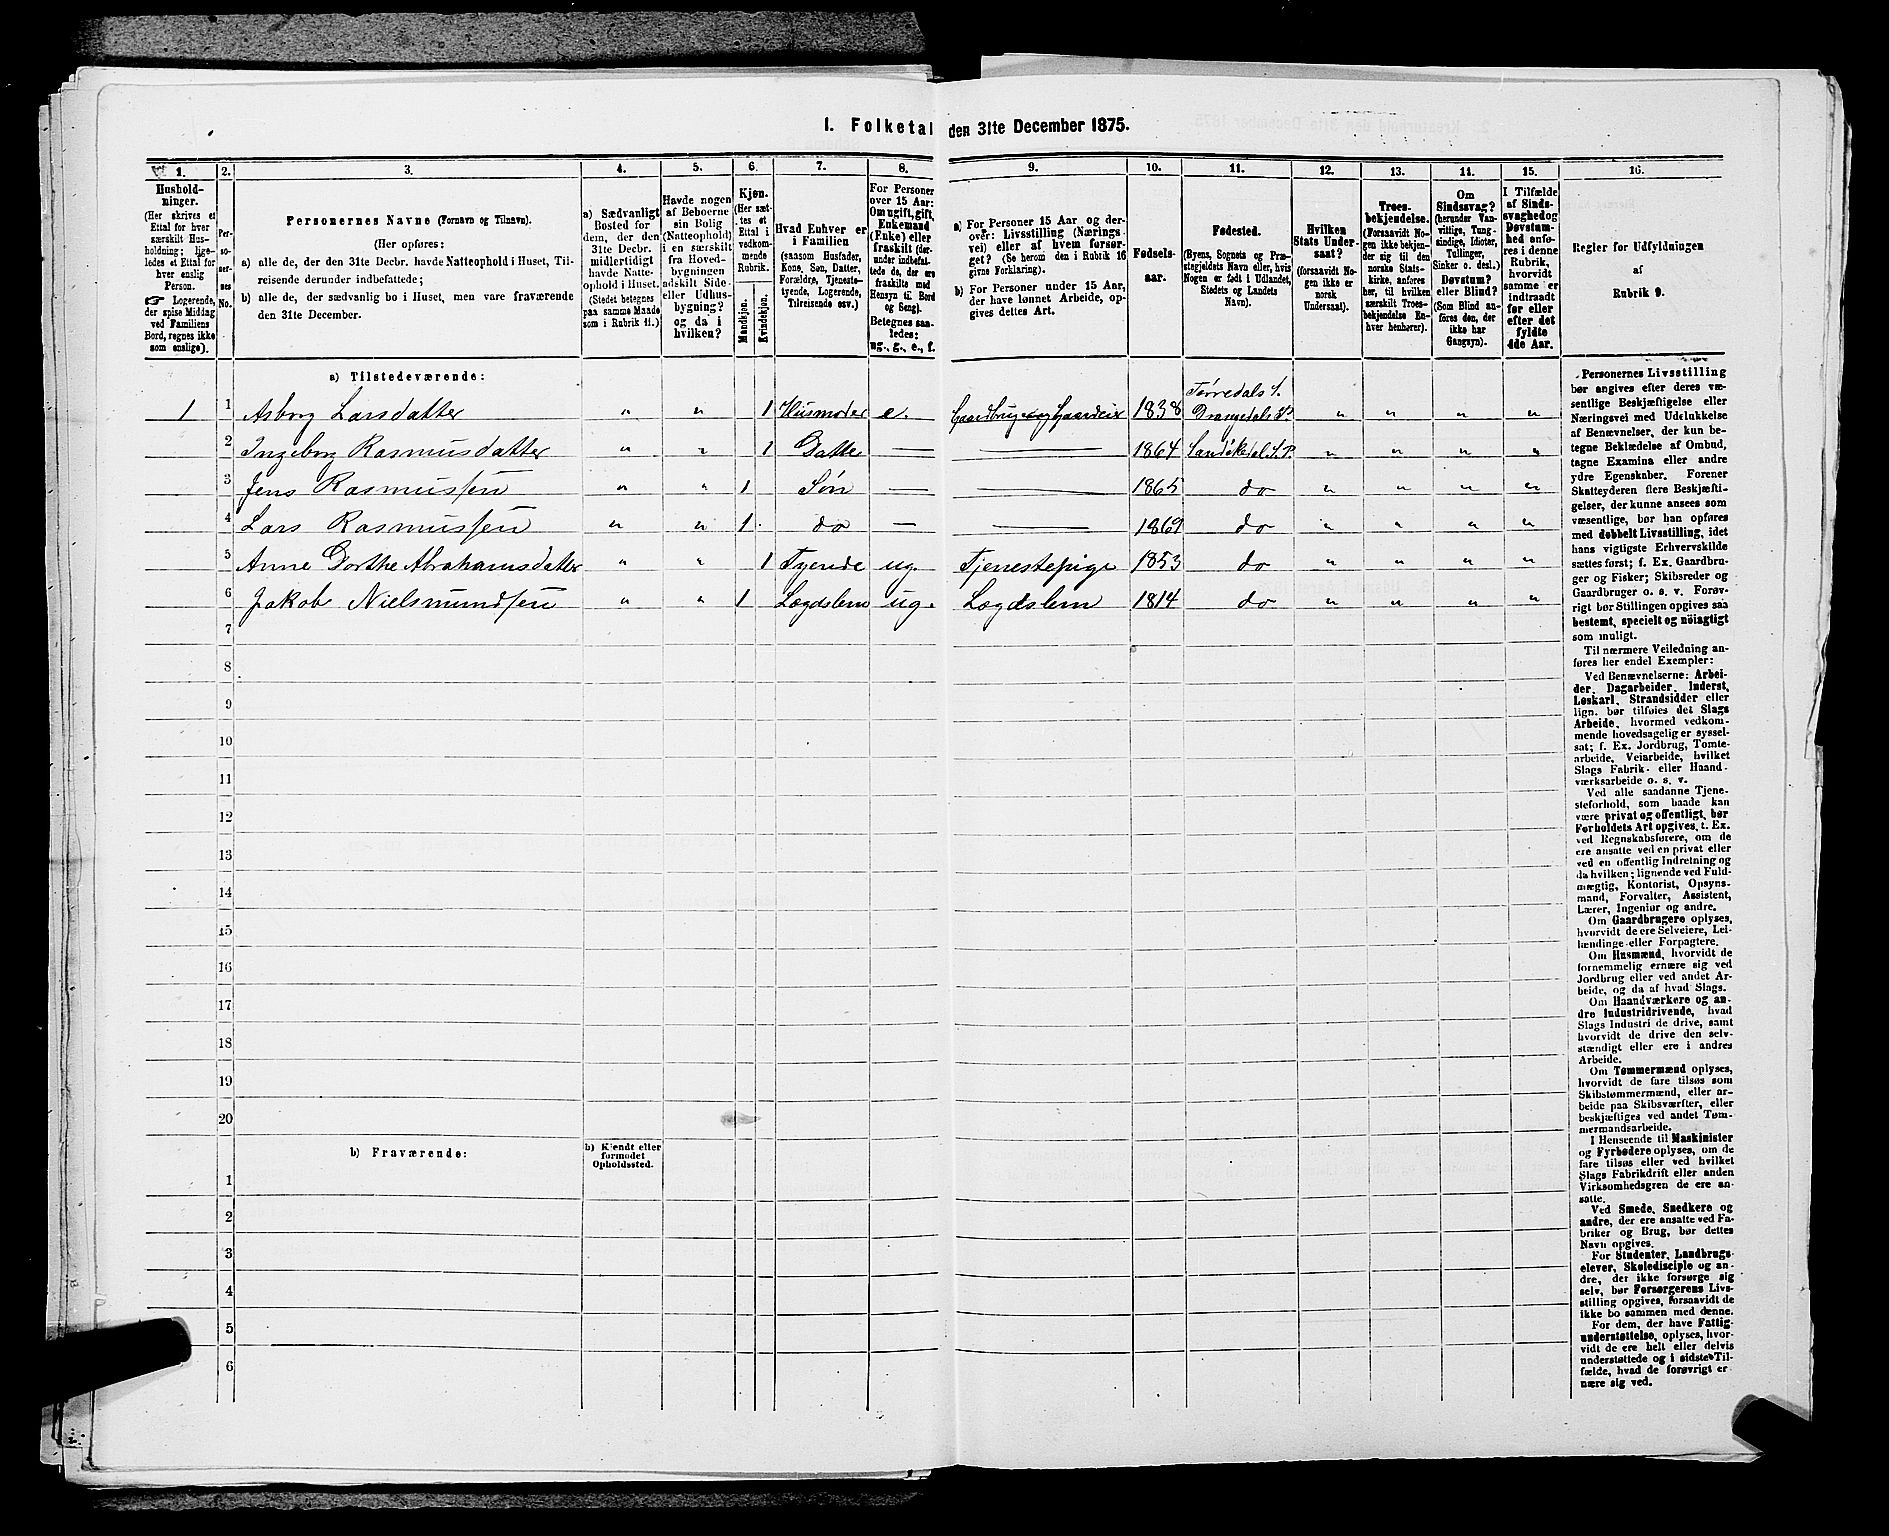 1. Folketal den 31te December 1875.
1. 2. 3. 4. 5. 6. 7. 8. 9. 10. 11. 12. 13. 14. 15. 16.
Hushold-
ninger.
(Her skrives et
Ettal for hver
særskilt Hus-
holdning; lige-
ledes et Ettal for
hver enslig
Person.
☞ Logerende,
der spise Middag
ved Familiens
Bord, regnes ikke
som enslige).
Per-
so-
ner-
nes
No.
Personernes Navne (Fornavn og Tilnavn).
(Her opføres:
a) alle de, der den 31te Decbr. havde Natteophold i Huset, Til-
reisende derunder indbefattede;
b) alle de, der sædvanlig bo i Huset, men vare fraværende
den 31te December.
a) Sædvanligt
Bosted for
dem, der den
31te Decbr.
midlertidigt
havde Natte-
ophold i Huset.
(Stedet betegnes
paa samme Maade
som i Rubrik 11.)
Havde nogen
af Beboerne
sin Bolig
(Natteophold)
i en særskilt
fra Hoved-
bygningen
adskilt Side-
eller Udhus-
bygning?
og da i
hvilken?
Kjøn.
(Her sæt-
tes et
Ettal i
vedkom-
mende
Rubrik.
Mandkjøn.
Kvindekjøn.
Hvad Enhver er
i Familien
(saasom Husfader,
Kone, Søn, Datter,
Forældre, Tjeneste-
tyende, Logerende,
Tilreisende osv.)
For Personer
over 15 Aar:
Om ugift, gift,
Enkemand
(Enke) eller
fraskilt (der-
under indbefat-
tede de, der ere
fraskilte med
Hensyn til Bord
og Seng).
Betegnes saa-
ledes:
ug., g., e., f.
a) For Personer 15 Aar og der-
over: Livsstilling (Nærings-
vei) eller af hvem forsør-
get? (Se herom den i Rubrik 16
givne Forklaring).
b) For Personer under 15 Aar,
der have lønnet Arbeide, op-
gives dettes Art.
Fødsels-
aar.
Fødested.
(Byens, Sognets og Præ-
stegjeldets Navn eller, hvis
Nogen er født i Udlandet,
Stedets og Landets
Navn).
Hvilken
Stats Under-
saat?
(forsaavidt No-
gen ikke er
norsk
Undersaat).
Troes-
bekjendelse.
(Forsaavidt No-
gen ikke bekjen-
der sig til den
norske Stats-
kirke, anføres
her, til hvilken
særskilt Troes-
bekjendelse En-
hver henhører).
Om
Sindssvag?
(herunder Van-
vittige, Tung-
sindige, Idioter,
Tullinger,
Sinker o. desl.)
Døvstum?
eller Blind?
(Som Blind an-
føres den, der
ikke har
Gangsyn).
I Tilfælde
af Sinds-
svaghed og
Døvstum-
hed anfø-
res i denne
Rubrik,
hvorvidt
samme er
indtraadt
før eller
efter det
fyldte
4de Aar.
Regler for Udfyldningen
af
Rubrik 9.
a) Tilstedeværende:
1 1 Asborg Larsdatter " " 1 Husmoder e. Gaardbrug og Gaardeier 1838 Tørredals S. Drangedals Pr. " " " "
2 Ingeborg Rasmusdatter " " 1 Datter — — 1864 Sandøkedal S. P. " " " "
3 Jens Rasmussen " " 1 Søn — — 1865 do " " " "
4 Lars Rasmussen " " 1 do — — 1869 do " " " "
5 Anne Dorthe Abrahamsdatter " " 1 Tyende ug. Tjenestepige 1853 do " " " "
6 Jakob Nielsmundsen " " 1 Lægdslem ug. Lægdslem 1814 do " " " "
7
8
9
9
10
11
12
13
14
15
16
17
18
19
20
b) Fraværende:
b) Kjendt eller
formodet
Opholdssted.
1
2
3
4
5
6
Personernes Livsstilling
bør angives efter deres væ-
sentlige Beskjæftigelse eller
Næringsvei med Udelukkelse
af Benævnelser, der kun be-
tegne Beklædelse af Ombud,
tagne Examina eller andre
ydre Egenskaber. Forener
Skatteyderen flere Beskjæfti-
gelser, der kunne ansees som
væsentlige, bør han opføres
med dobbelt Livsstilling, idet
hans vigtigste Erhvervskilde
sættes først; f. Ex. Gaardbru-
ger og Fisker; Skibsreder og
Gaardbruger o. s. v. Forøv-
rigt bør Stillingen opgives saa
bestemt, specielt og nöiagtigt
som muligt.
Til nærmere Veiledning an-
føres her endel Exempler:
Ved Benævnelserne: Arbei-
der, Dagarbeider, Inderst,
Løskarl, Strandsidder eller
lign. bør tilføies det Slags
Arbeide, hvormed vedkom-
mende hovedsagelig er syssel-
sat; f. Ex. Jordbrug, Tomte-
arbeide, Veiarbeide, hvilket
Slags Fabrik- eller Haand-
værksarbeide o. s. v.
Ved alle saadanne Tjene-
steforhold, som baade kan
være privat og offentligt, bør
Forholdets Art opgives, t. Ex.
ved Regnskabsførere, om de
ere ansatte ved en privat eller
ved en offentlig Indretning og
da hvilken; lignende ved Fuld-
mægtig, Kontorist, Opsyns-
mand, Forvalter, Assistent,
Lærer, Ingeniør og andre.
Om Gaardbrugere oplyses,
hvorvidt de ere Selveiere, Lei-
lændinge eller Forpagtere.
Om Husmænd, hvorvidt de
fornemmelig ernære sig ved
Jordbrug eller ved andet Ar-
beide, og da af hvad Slags.
Om Haandværkere og an-
dre Industridrivende, hvad
Slags Industri de drive, samt
hvorvidt de drive den selv-
stændigt eller ere i andres
Arbeide.
Om Tømmermænd oplyses,
hvorvidt de fare tilsøs som
Skibstømmermænd, eller ar-
beide paa Skibsværfter, eller
beskjæftiges ved andet Tøm-
mermandsarbeide.
I Henseende til Maskinister
og Fyrbødere oplyses, om de
fare tilsøs eller ved hvilket
Slags Fabrikdrift eller anden
Virksomhedsgren de ere an-
satte.
Ved Smede, Snedkere og
andre, der ere ansatte ved Fa-
briker og Brug, bør dettes
Navn opgives.
For Studenter, Landbrugs-
elever, Skoledisciple og an-
dre, der ikke forsørge sig
selv, bør Forsørgerens Livs-
stilling opgives, forsaavidt de
ikke bo sammen med denne.
For dem, der have Fattig-
understøttelse, oplyses, hvor-
vidt de ere helt eller delvis
understøttede og i sidste Til-
fælde, hvad de forøvrigt er-
nære sig ved.